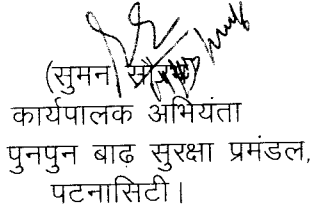 (सुमन
कार्यपालक अभियंता
पुनपुन बाढ़ सुरक्षा प्रमंडल,
पटनासिटी।